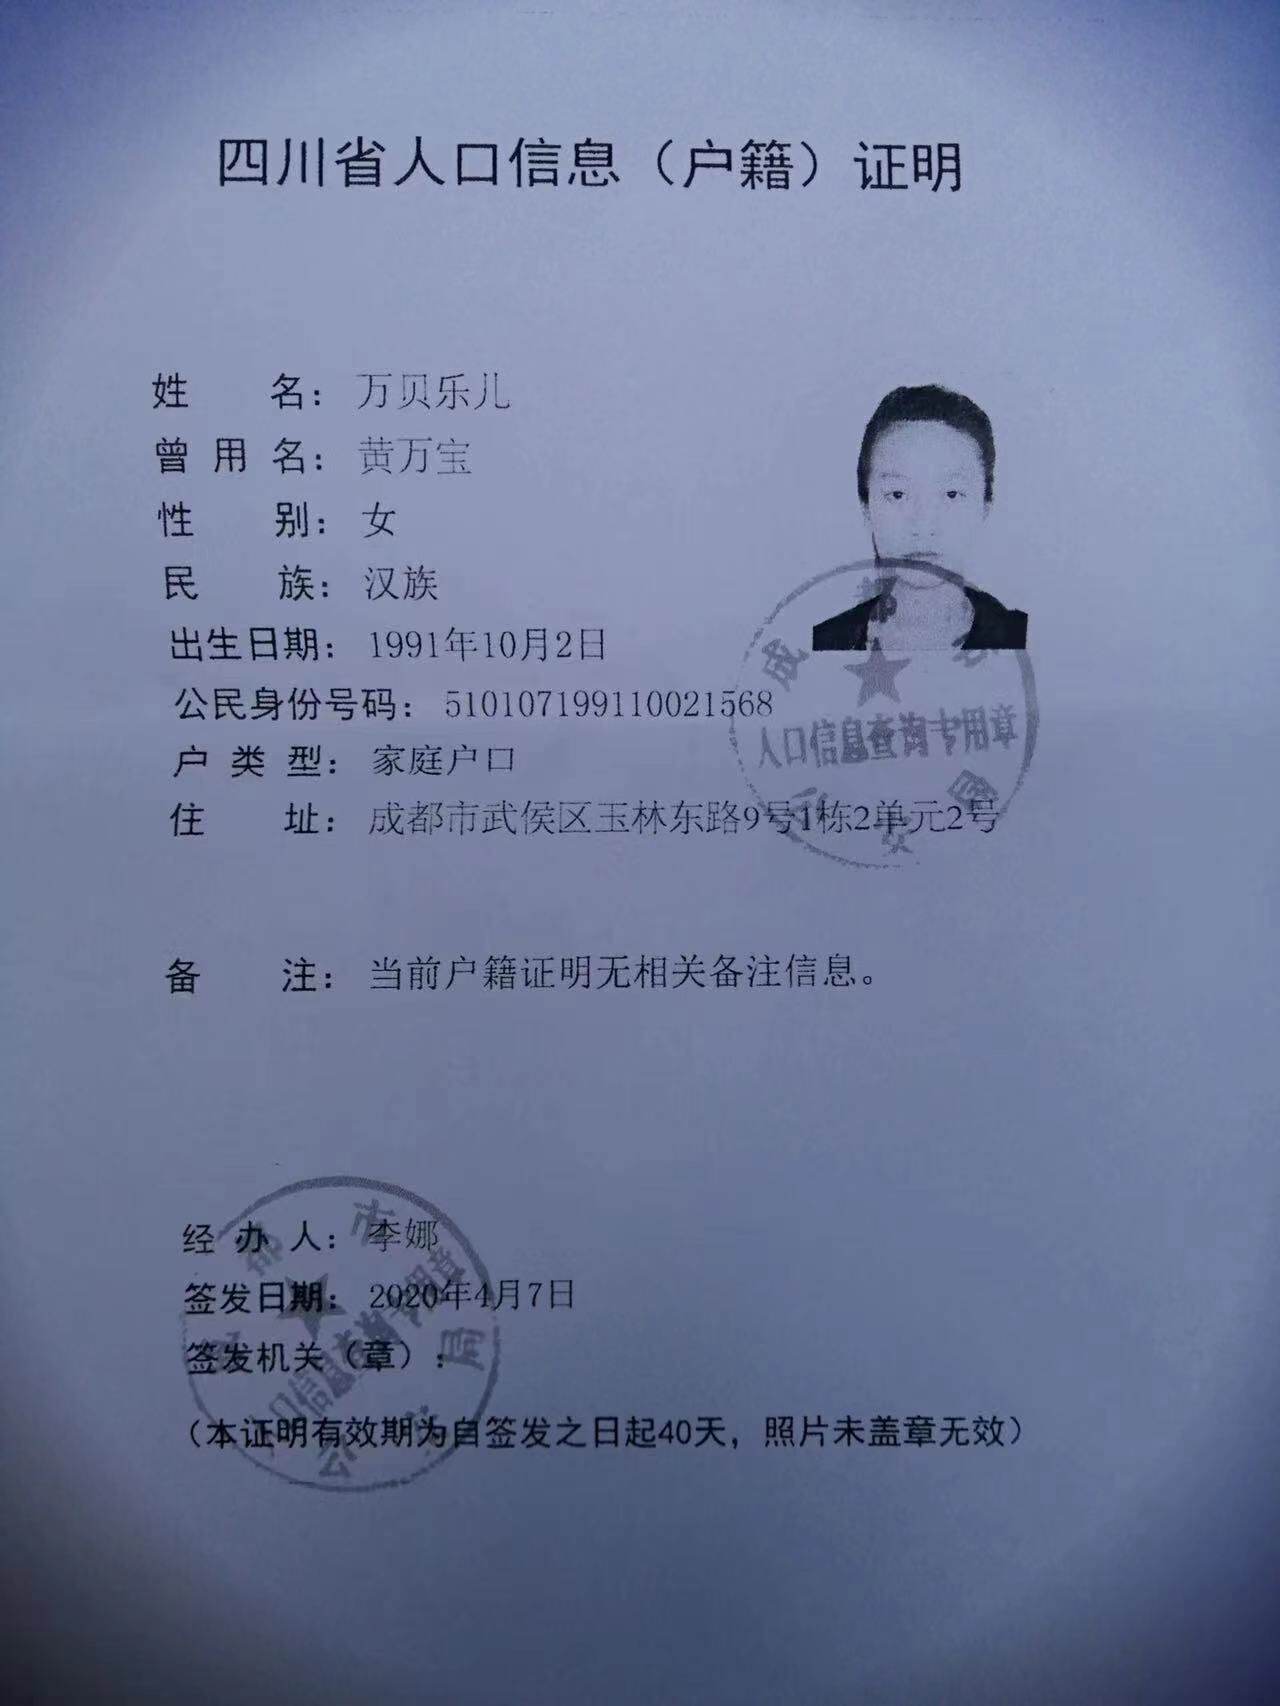 四川省人口信息（户籍）证明
姓 名：万贝乐儿
曾 用 名：黄万宝
性 别：女
民 族：汉族
出生日期：1991年10月2日
公民身份号码：510107199110021568
户 类 型：家庭户口
住 址：成都市武侯区玉林东路9号1栋2单元2号
成都市公安局
人口信息查询专用章
备 注：当前户籍证明无相关备注信息。
经 办 人：李娜
签发日期：2020年4月7日
签发机关（章）：
成都市公安局
人口信息查询专用章
（本证明有效期为自签发之日起40天，照片未盖章无效）